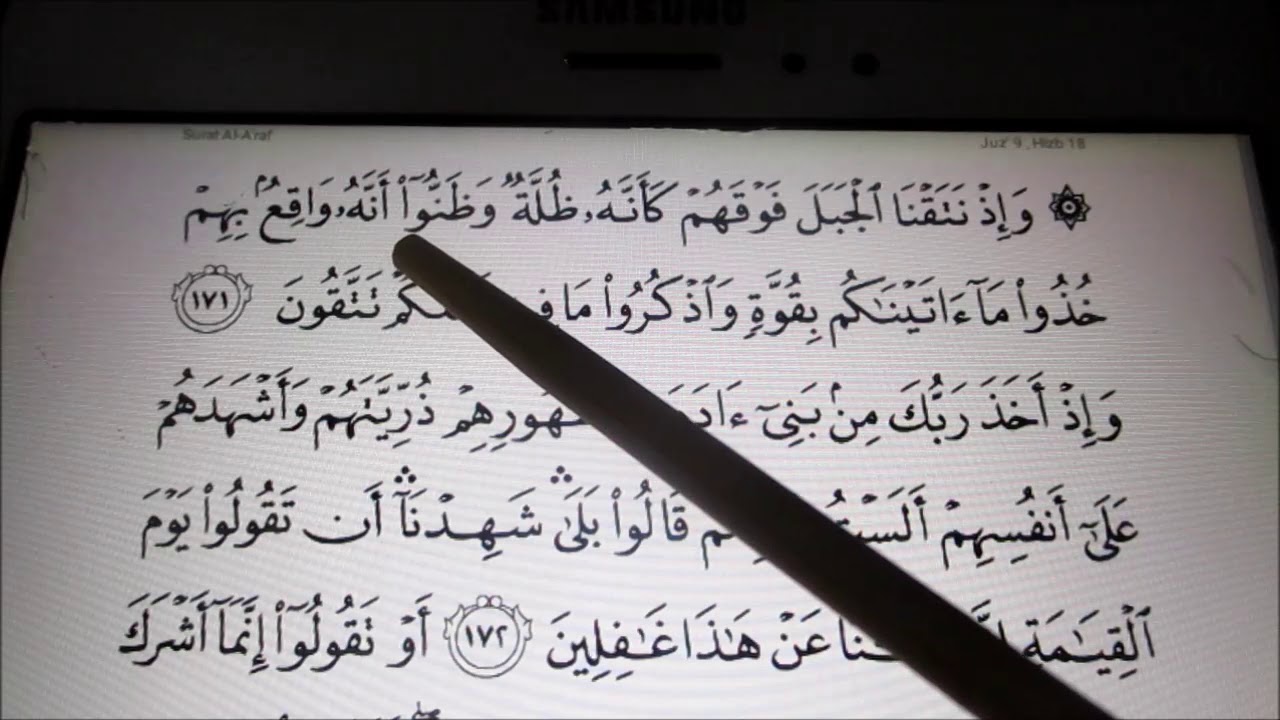 SAMSUNG
Surat Al-A'raf
Juz' 9 , Hizb 18
۞ وَإِذْ نَتَقْنَا ٱلْجَبَلَ فَوْقَهُمْ كَأَنَّهُۥ ظُلَّةٌ وَظَنُّوٓا۟ أَنَّهُۥ وَاقِعٌۢ بِهِمْ
خُذُوا۟ مَآ ءَاتَيْنَـٰكُم بِقُوَّةٍ وَٱذْكُرُوا۟ مَا تَتَّقُونَ ١٧١
وَإِذْ أَخَذَ رَبُّكَ مِنۢ بَنِىٓ ذُرِّيَّتَهُمْ وَأَشْهَدَهُمْ
عَلَىٰٓ أَنفُسِهِمْ قَالُوا۟ بَلَىٰ ۛ شَهِدْنَآ ۛ أَن تَقُولُوا۟ يَوْمَ
ٱلْقِيَـٰمَةِ عَنْ هَـٰذَا غَـٰفِلِينَ ١٧٢ أَوْ تَقُولُوٓا۟ إِنَّمَآ أَشْرَكَ